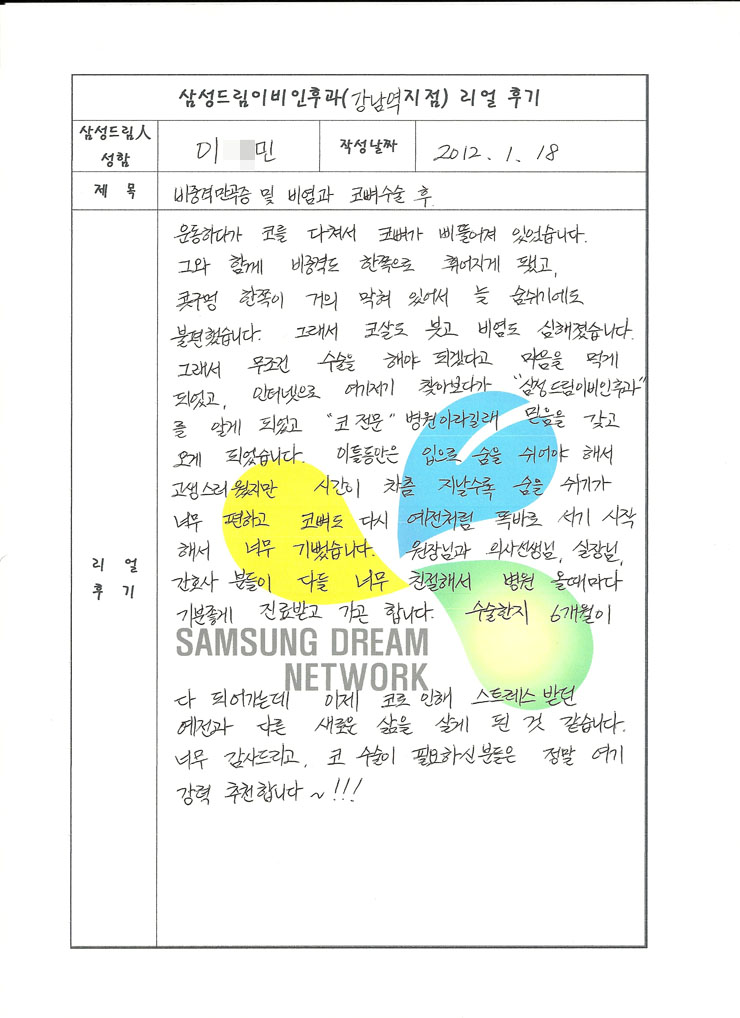 삼성드림이비인후과(강남역지점) 리얼 후기
삼성드림人 성함
이 민
작성날짜
2012. 1. 18
제 목
비중격만곡증 및 비염과 코뼈수술 후.
리 얼
후 기
운동하다가 코를 다쳐서 코뼈가 삐뚤어져 있었습니다.
그와 함께 비중격도 한쪽으로 휘어지게 됐고,
콧구멍 한쪽이 거의 막혀 있어서 늘 숨쉬기에도
불편했습니다. 그래서 코살도 붓고 비염도 심해졌습니다.
그래서 무조건 수술을 해야 되겠다고 마음을 먹게
되었고, 인터넷으로 여기저기 찾아보다가 "삼성드림이비인후과"
를 알게 되었고 "코 전문" 병원이라길래 믿음을 갖고
오게 되었습니다. 이틀동안은 입으로 숨을 쉬어야 해서
고생스러웠지만 시간이 차츰 지날수록 숨을 쉬기가
너무 편하고 코뼈도 다시 예전처럼 똑바로 서기 시작
해서 너무 기뻤습니다. 원장님과 의사선생님, 실장님,
간호사 분들이 다들 너무 친절해서 병원 올때마다
기분좋게 진료받고 가곤 합니다. 수술한지 6개월이
SAMSUNG DREAM
NETWORK
다 되어가는데 이제 코로 인해 스트레스 받던
예전과 다른 새로운 삶을 살게 된 것 같습니다.
너무 감사드리고, 코 수술이 필요하신분들은 정말 여기
강력 추천합니다~!!!